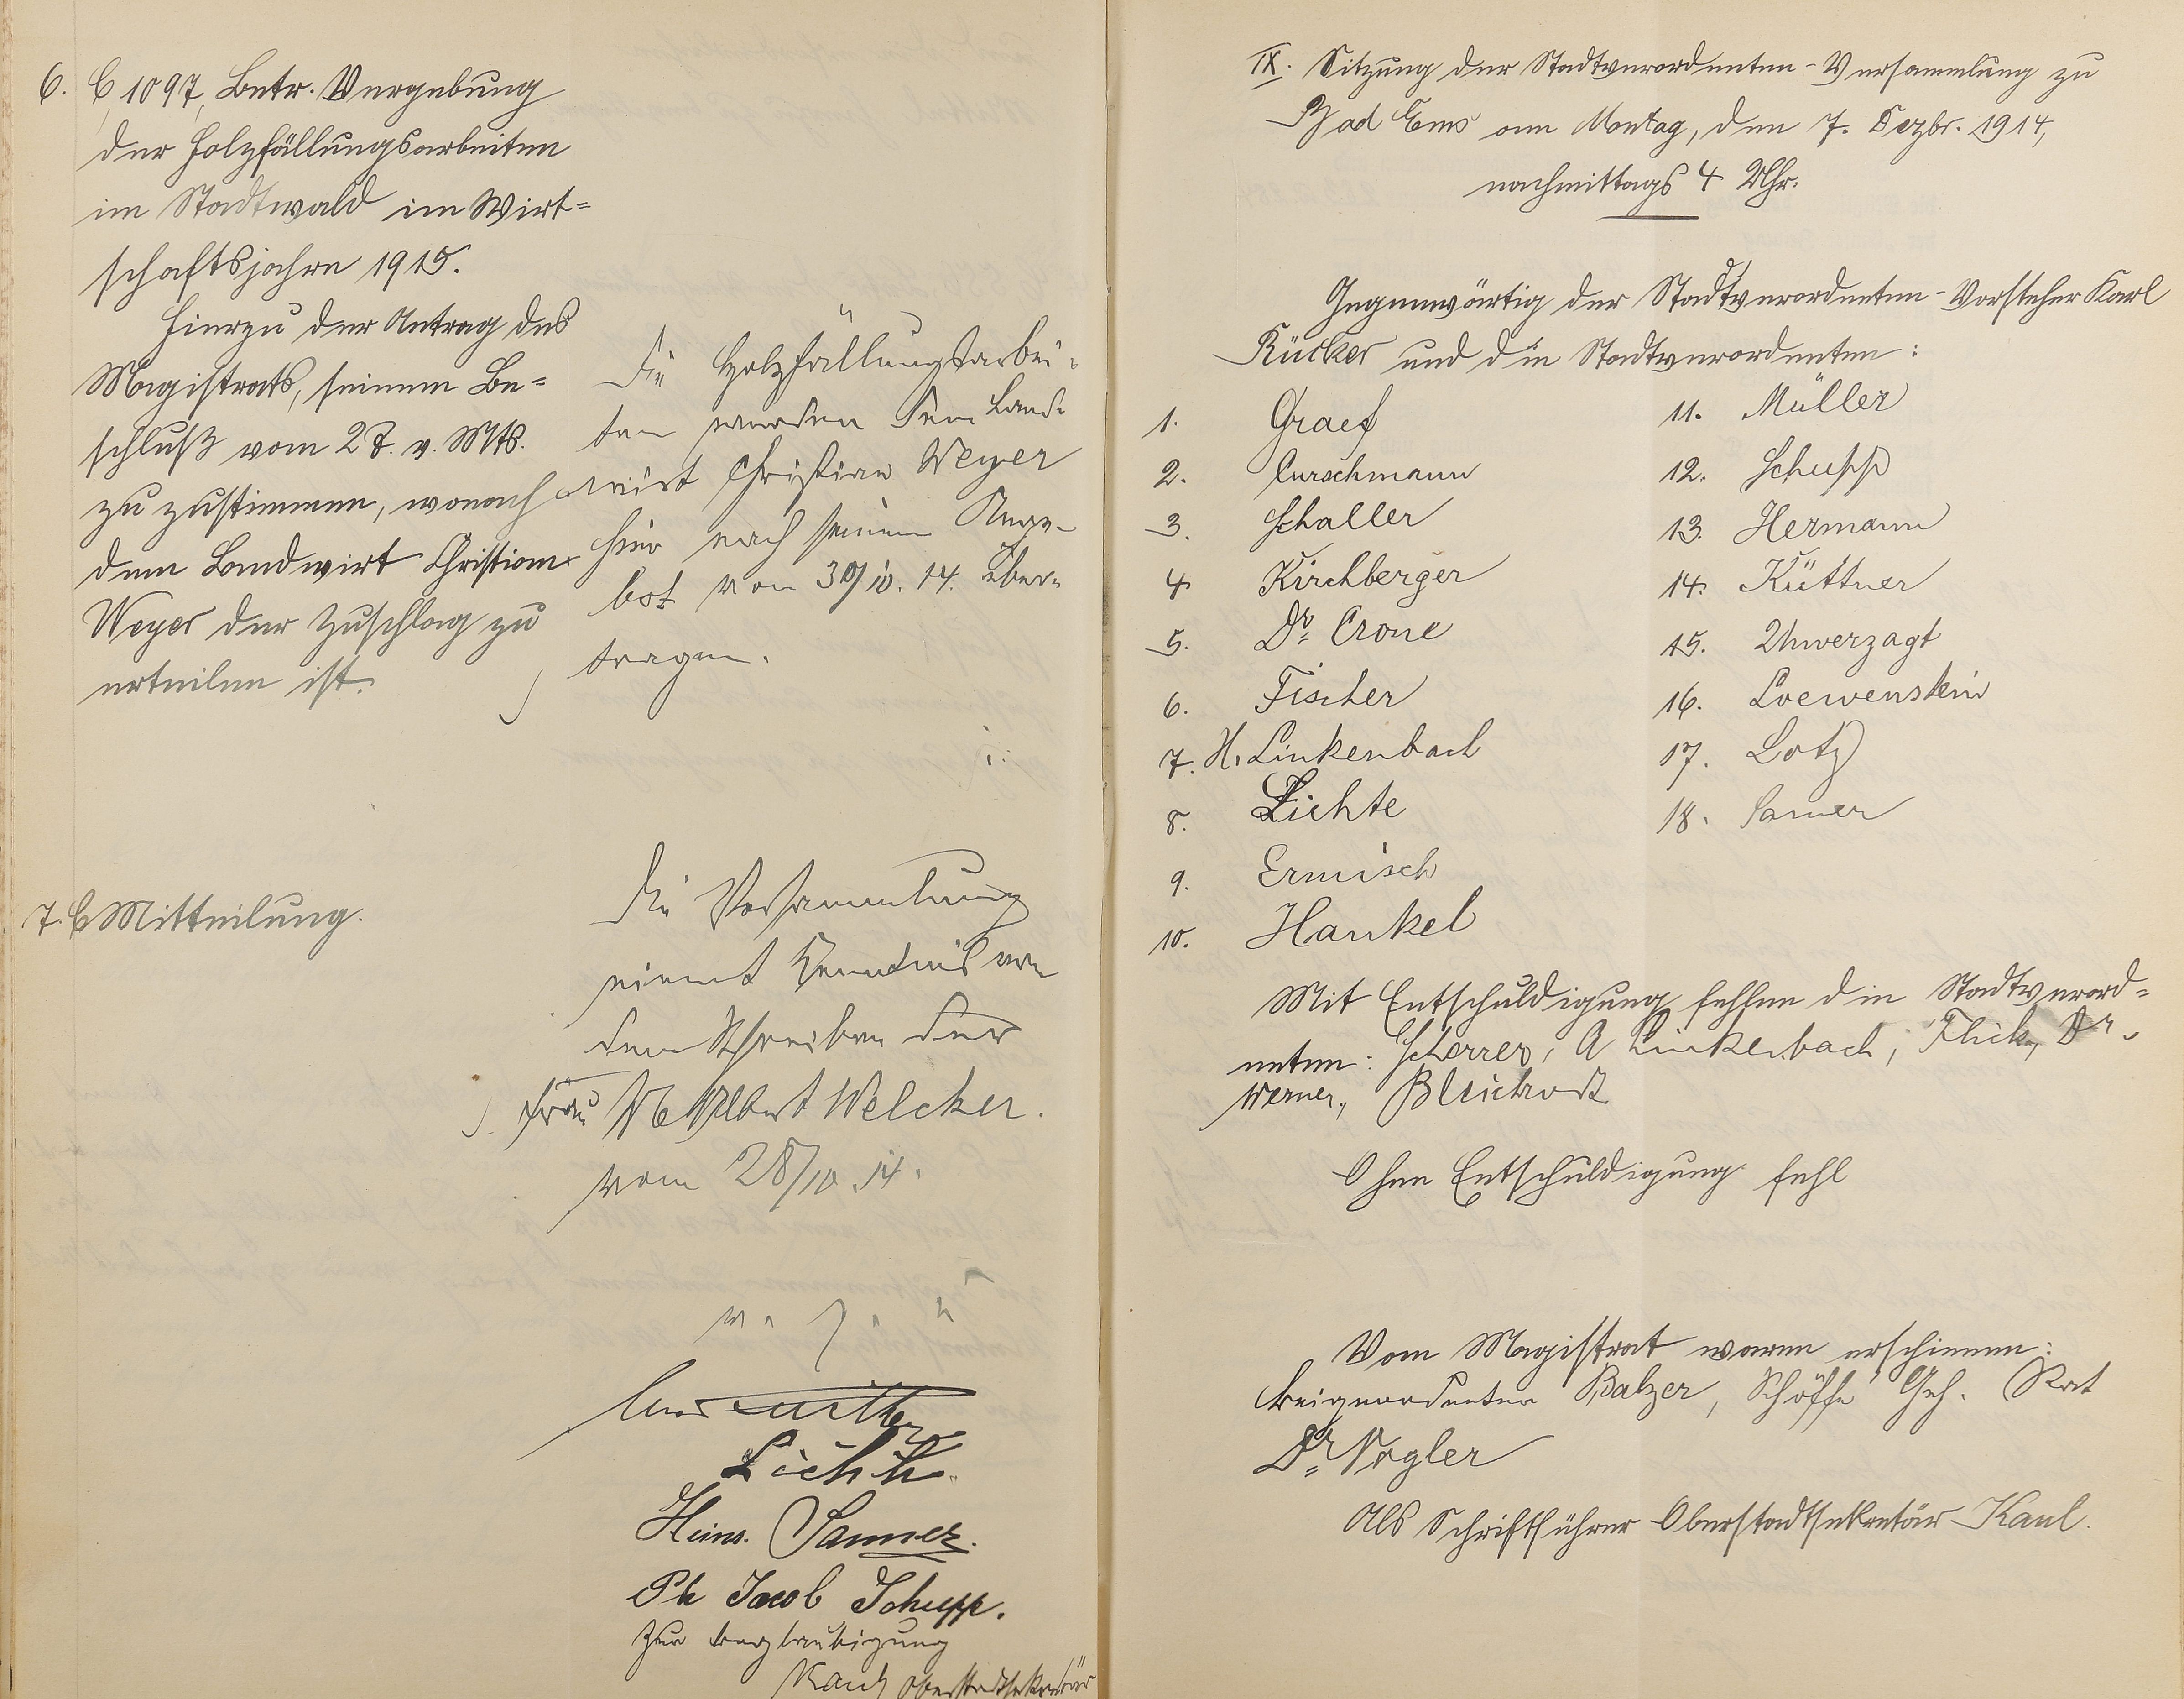 6. C 1097, Betr. Vergebung
der Holzfällungsarbeiten
im Stadtwald im Wirt=
schaftsjahre 1915.
Hierzu der Antrag des
Magistrats, seinem Be=
schluß vom 27. v. Mts.
zu zustimmen, wonach
dem Landwirt Christian
Weyer der Zuschlag zu
erteilen ist.
Die Holzfällungsarbei-
ten werden dem Land-
wirt Christian Weyer
hier nach seinem Ange-
bot vom 30/10. 14. über-
tragen.
7. C Mitteilung.
Die Versammlung
nimmt Kenntnis von
dem Schreiben der
Frau Albert Welcker.
vom 28/10. 14.
v. g. u.
Lichte
Heinr. Sanner.
Ph Jacob Schupp.
Zur Beglaubigung
Kaul Oberstadtsekretär
IX. Sitzung der Stadtverordneten-Versammlung zu
Bad Ems am Montag, den 7. Dezbr. 1914,
nachmittags 4 Uhr.
Gegenwärtig der Stadtverordneten-Vorsteher Karl
Rücker und die Stadtverordneten:
1. Graef
2. Curschmann
3. Schaller
4. Kirchberger
5. Dr. Crone
6. Fischer
7. H. Linkenbach
8. Lichte
9. Ermisch
10. Hankel
11. Müller
12. Schupp
13. Hermann
14. Küttner
15. Unverzagt
16. Loewenstein
17. Lotz
18. Sanner
Mit Entschuldigung fehlen die Stadtverord=
neten: Schorrer, A Linkenbach, Flick, Dr.
Werner, Bleichrodt
Ohne Entschuldigung fehl
Vom Magistrat waren erschienen:
Beigeordneter Balzer, Schöffe Geh. Rat
Dr. Vogler
Als Schriftführer Oberstadtsekretär Kaul.